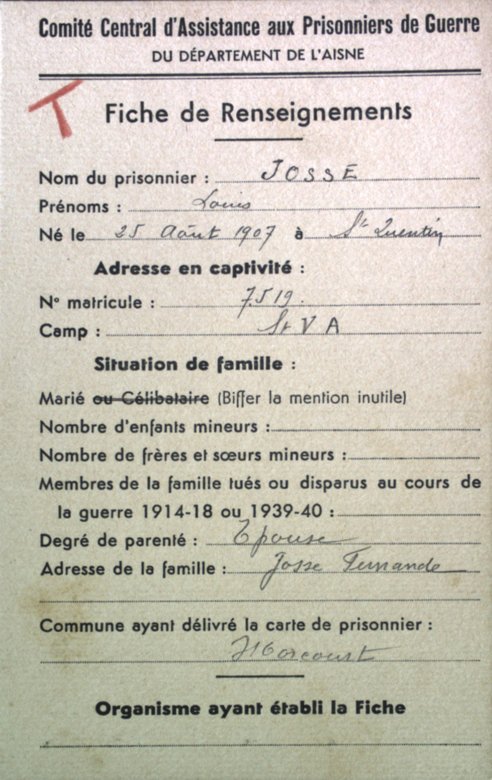 Comité Central d'Assistance aux Prisonniers de Guerre
DU DÉPARTEMENT DE L'AISNE
T
Fiche de Renseignements
Nom du prisonnier : JOSSE
Prénoms : Louis
Né le 25 Août 1907 à St Quentin
Adresse en captivité :
N° matricule : 7519
Camp : St V A
Situation de famille :
Marié ou Célibataire (Biffer la mention inutile)
Nombre d'enfants mineurs :
Nombre de frères et sœurs mineurs :
Membres de la famille tués ou disparus au cours de
la guerre 1914-18 ou 1939-40 :
Degré de parenté : Epouse
Adresse de la famille : Josse Fernande
Commune ayant délivré la carte de prisonnier :
Morcourt
Organisme ayant établi la Fiche